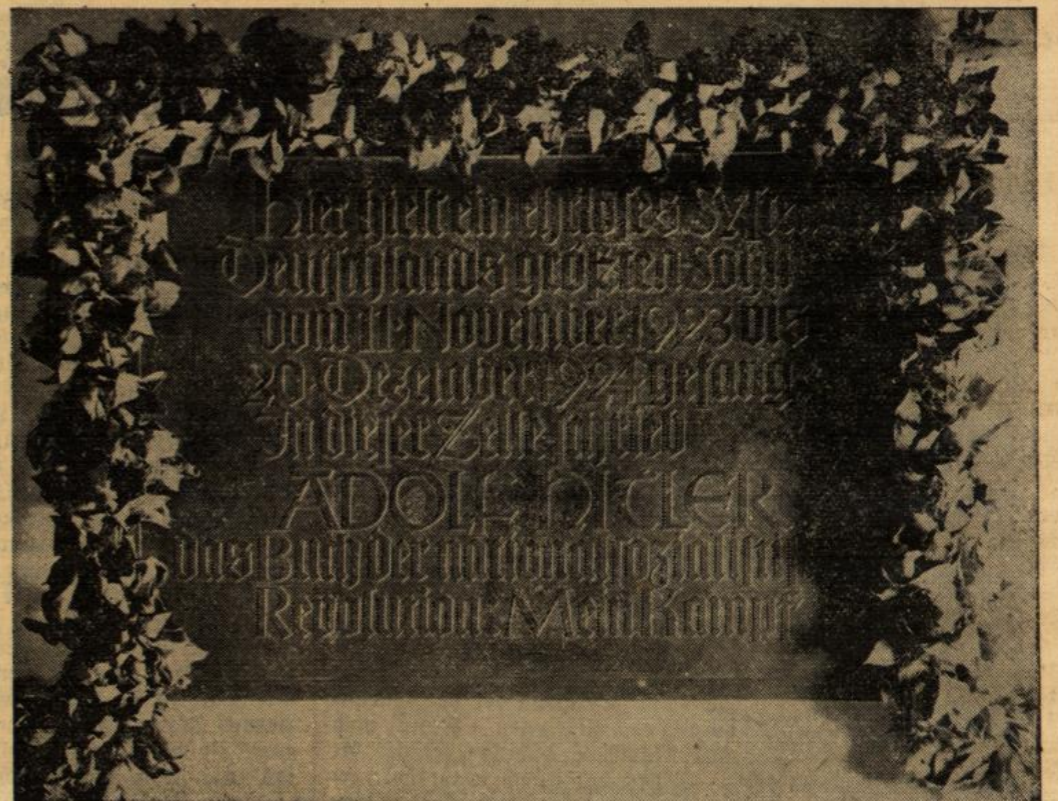 Hier hielt ein ehrloses Syste
Deutschlands größten Sohn
vom 11. November 1923 bis
20. Dezember 1924 gefang
In dieser Zelle schrieb
ADOLF HITLER
das Buch der nationalsozialistis
Revolution Mein Kampf